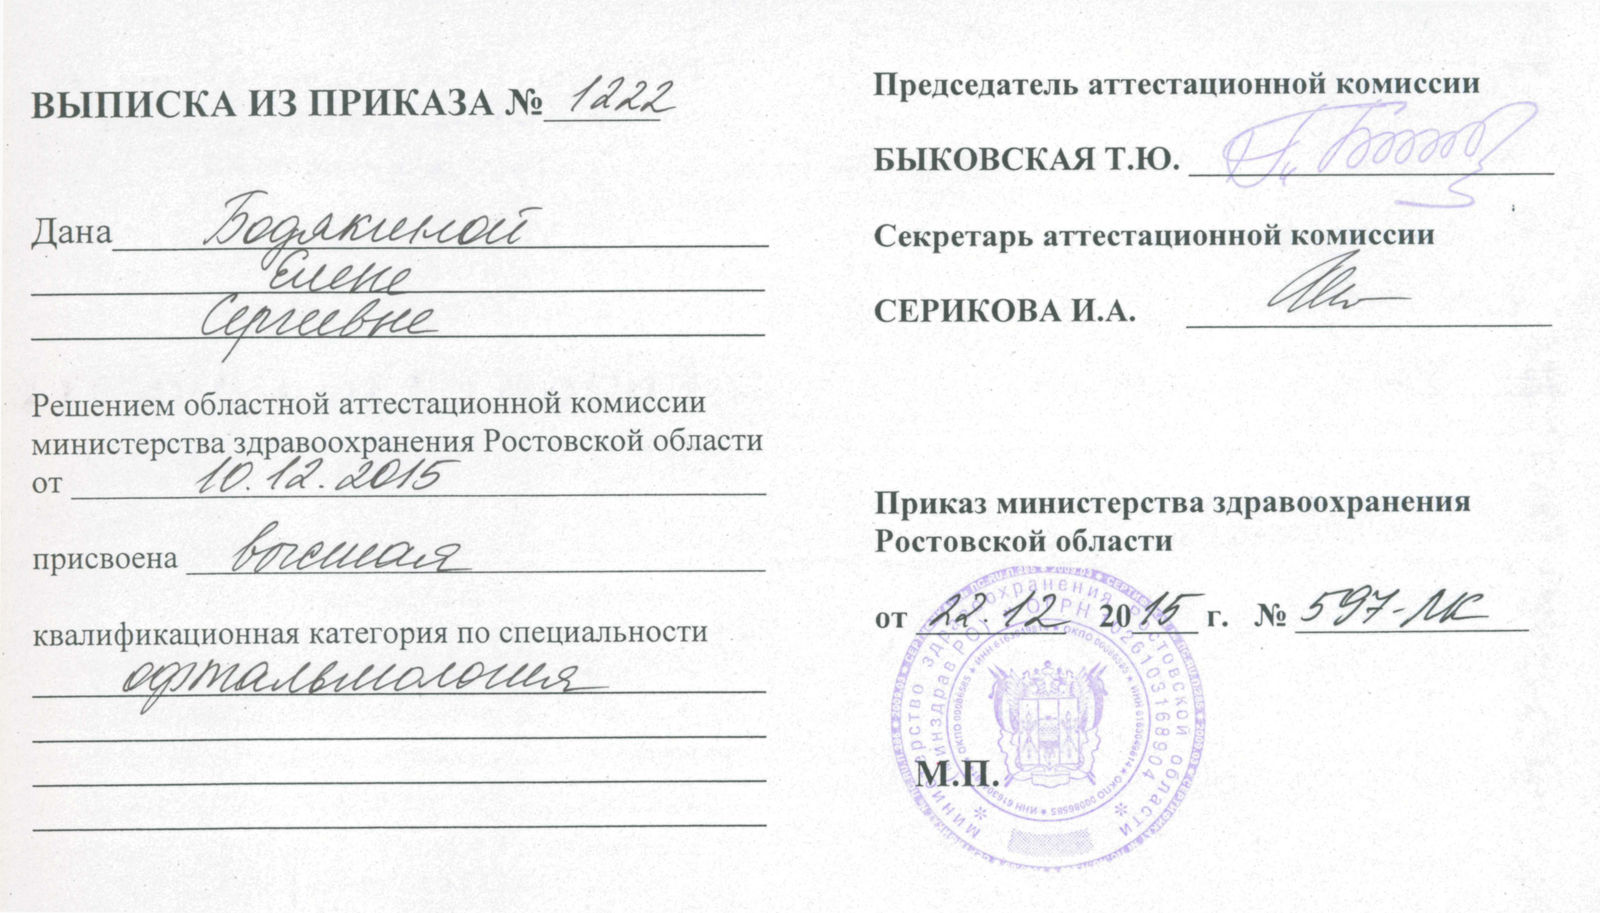 ВЫПИСКА ИЗ ПРИКАЗА № 1222
Дана Бодякиной
Елене
Сергеевне
Решением областной аттестационной комиссии
министерства здравоохранения Ростовской области
от 10.12.2015
присвоена высшая
квалификационная категория по специальности
офтальмология
Председатель аттестационной комиссии
БЫКОВСКАЯ Т.Ю.
Секретарь аттестационной комиссии
СЕРИКОВА И.А.
Приказ министерства здравоохранения
Ростовской области
от 22.12 2015 г. № 597-ЛК
М.П.
Министерство здравоохранения Ростовской области